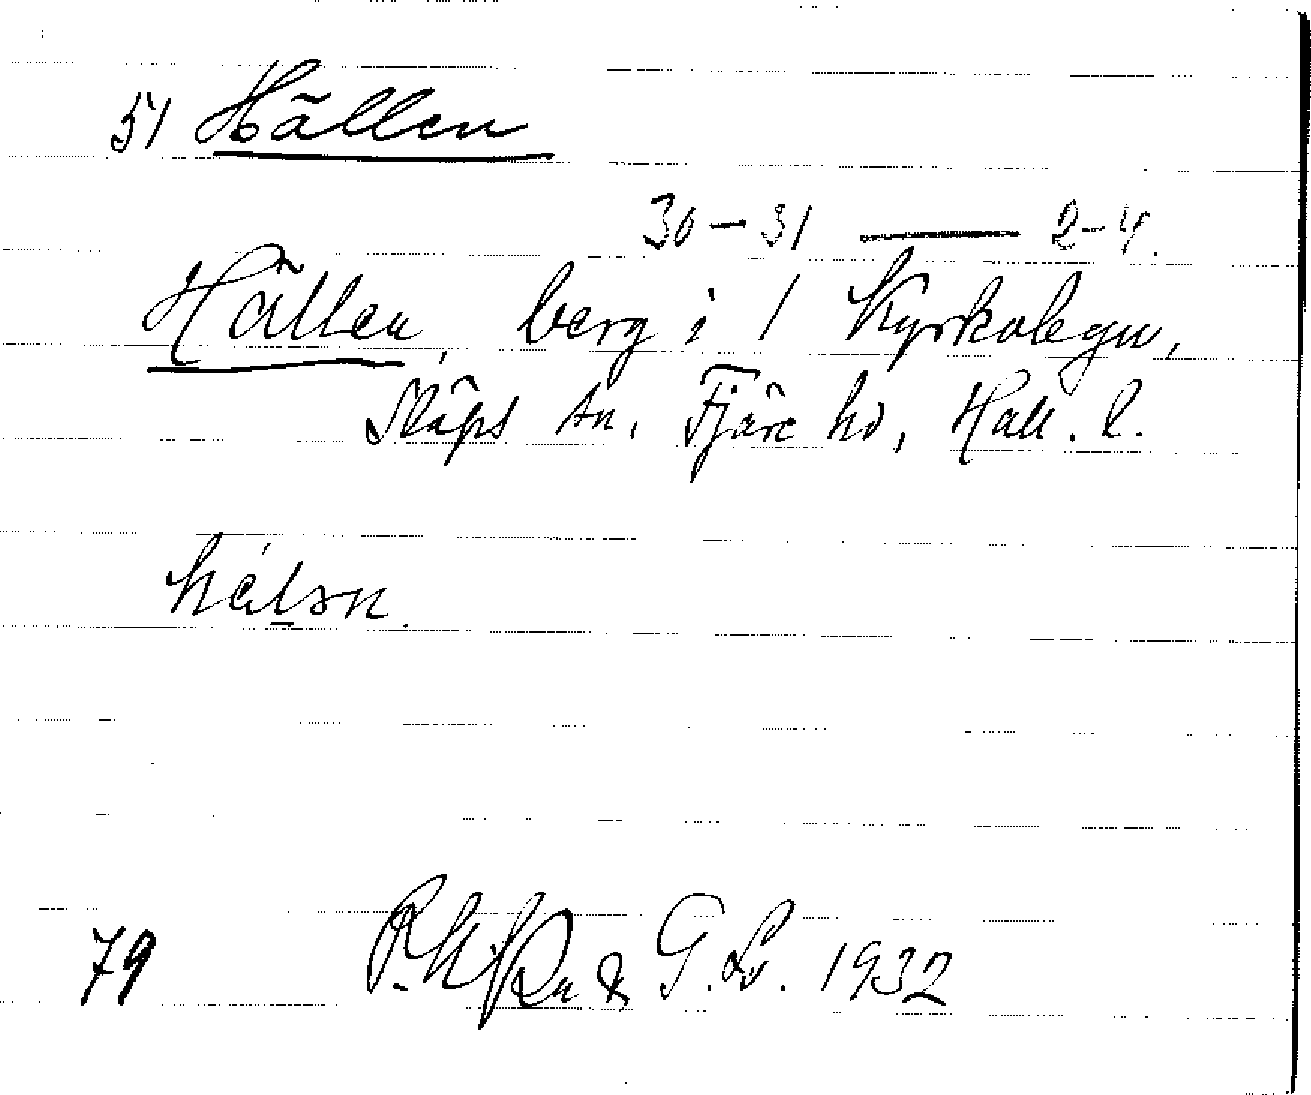 51 Hällen
30 – 31 —— 2-4.
Hällen, berg i 1 Kyrkolegu,
Släps sn. Fjäre hd, Hall. l.
79 & G. Lr. 1932